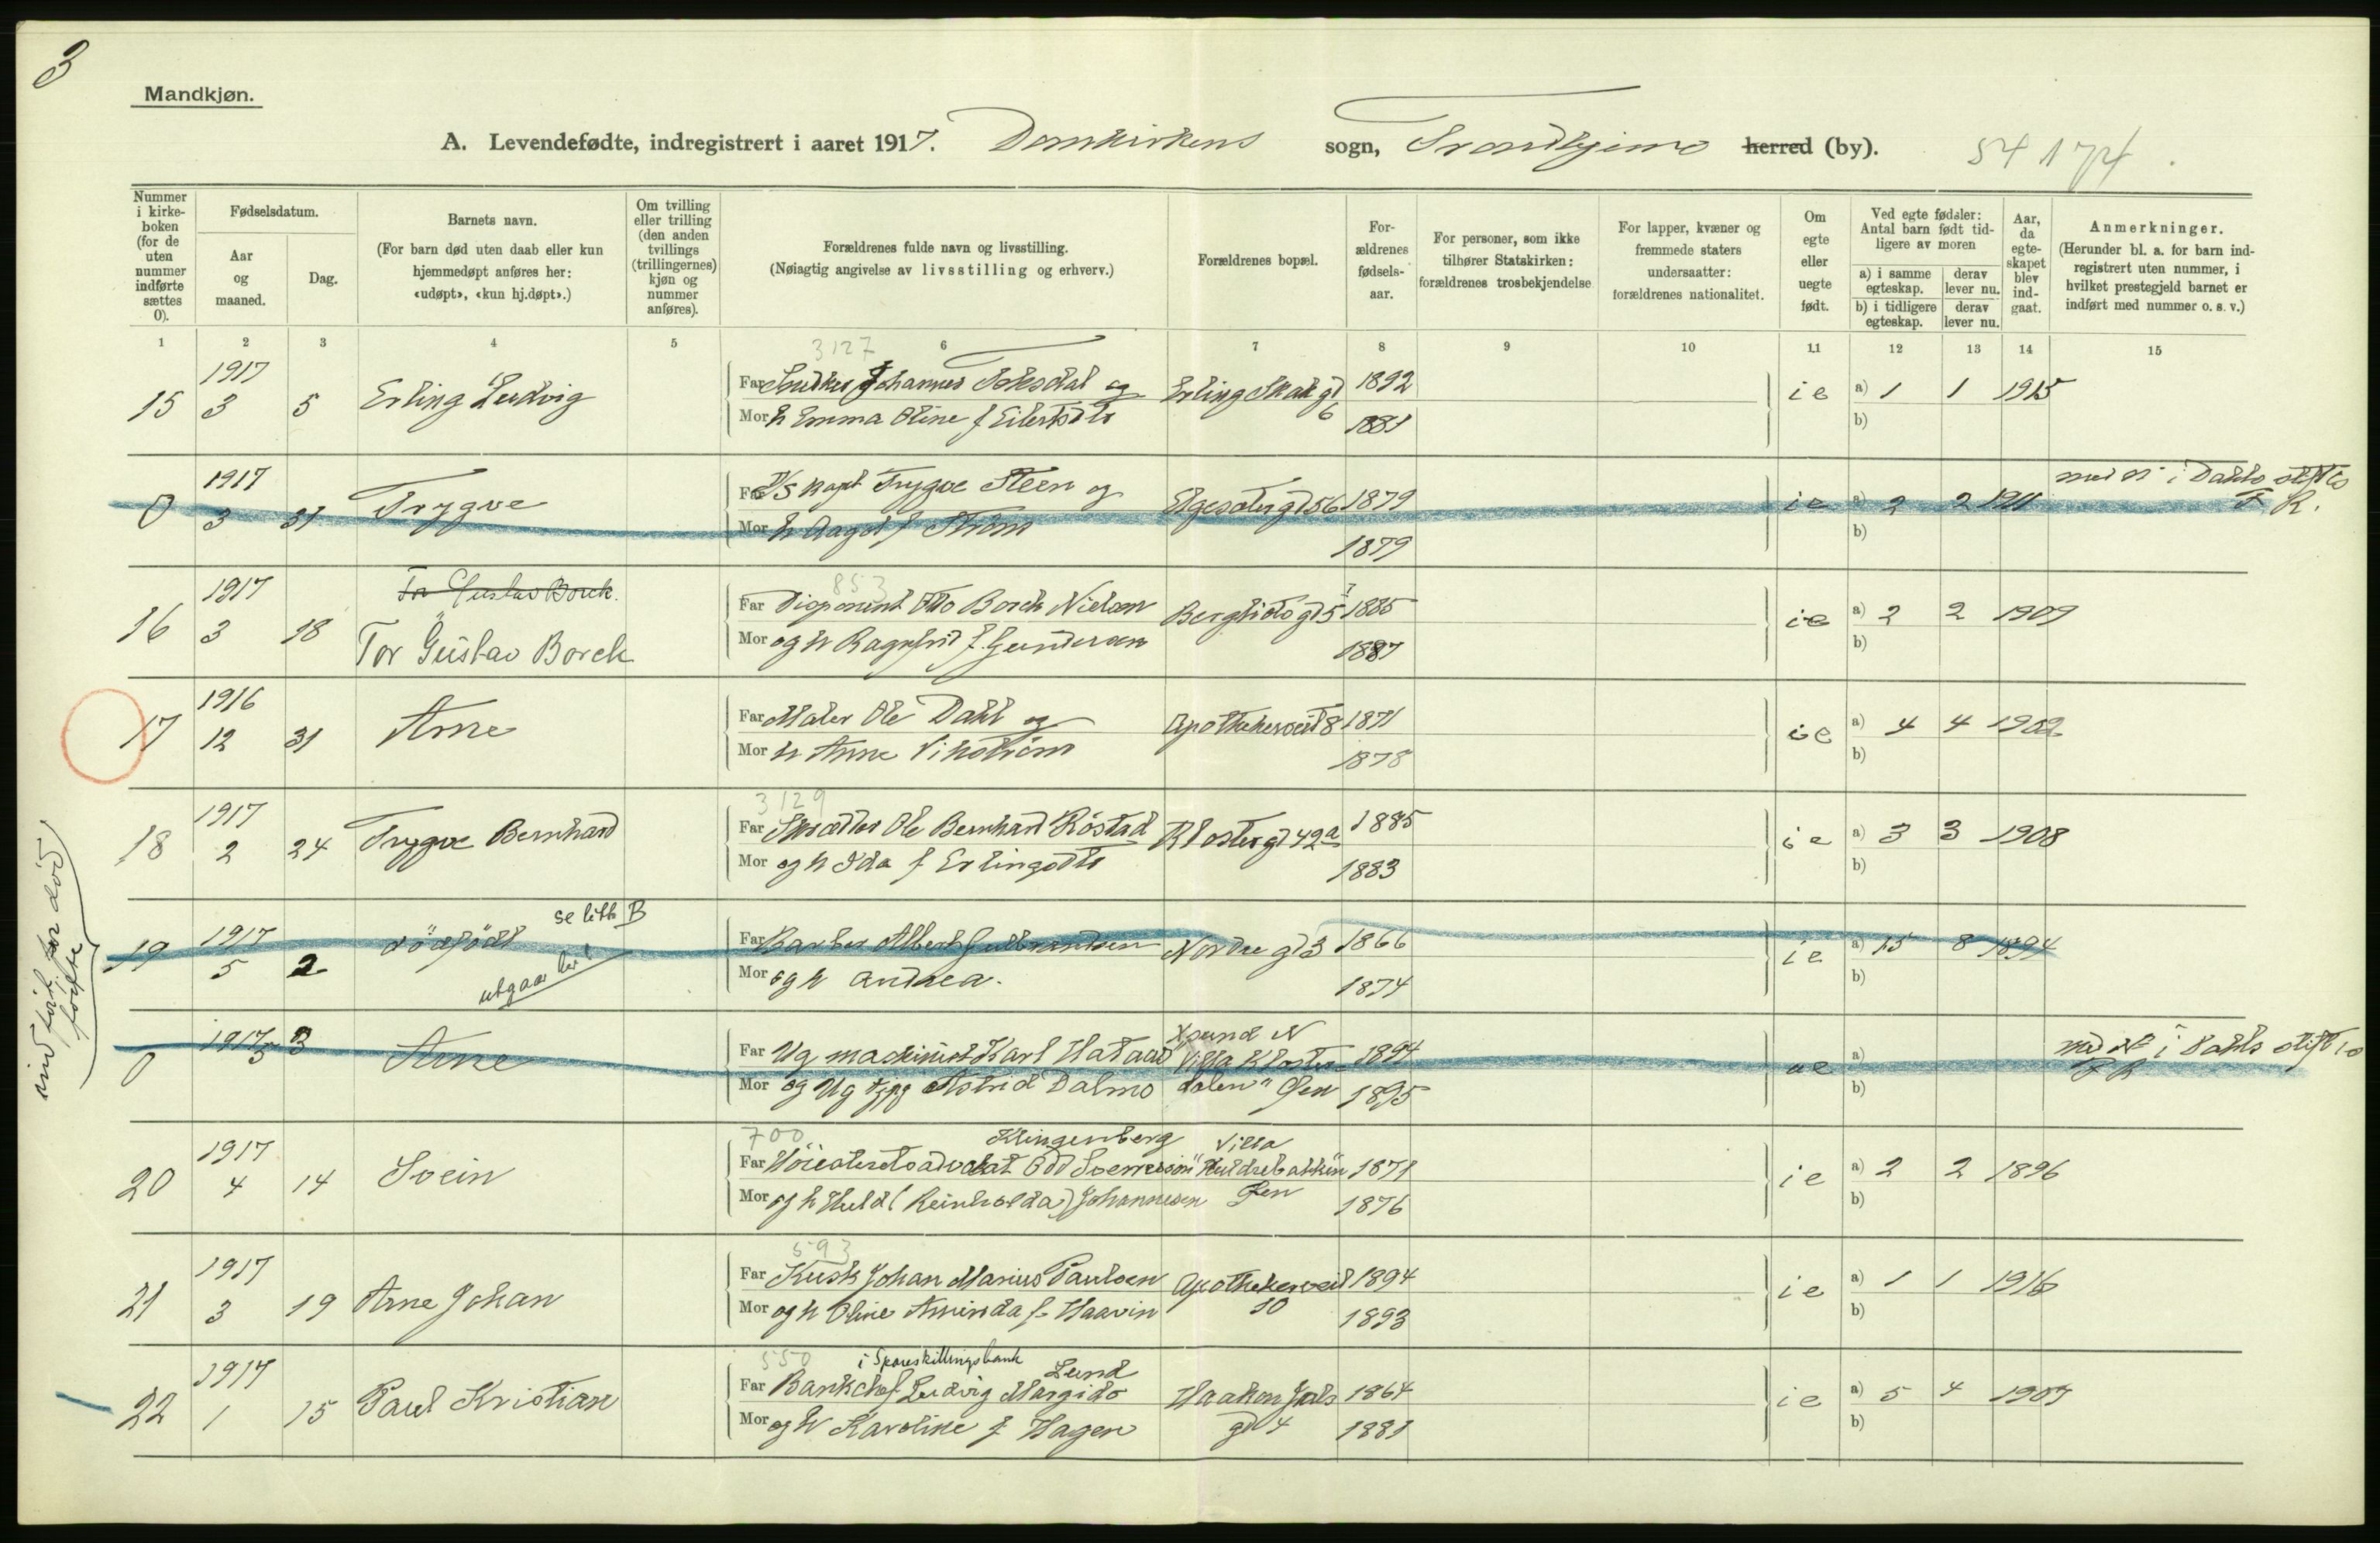 3
Mandkjøn.
A. Levendefødte, indregistrert i aaret 1917. Domkirkens sogn, Trondhjems herred (by). 54 174.
Nummer i kirke-boken (for de uten nummer indførte sættes 0).
Fødselsdatum.
Aar og maaned.
Dag.
Barnets navn.
(For barn død uten daab eller kun hjemmedøpt anføres her: «udøpt», «kun hj.døpt».)
Om tvilling eller trilling (den anden tvillings (trillingernes) kjøn og nummer anføres).
Forældrenes fulde navn og livsstilling.
(Nøiagtig angivelse av livsstilling og erhverv.)
Forældrenes bopæl.
For-ældrenes fødsels-aar.
For personer, som ikke tilhører Statskirken: forældrenes trosbekjendelse
For lapper, kvæner og fremmede staters undersaatter: forældrenes nationalitet.
Om egte eller uegte født.
Ved egte fødsler: Antal barn født tid-ligere av moren
a) i samme egteskap. derav lever nu.
b) i tidligere egteskap. derav lever nu.
Aar, da egte-skapet blev ind-gaat.
Anmerkninger.
(Herunder bl. a. for barn ind-registrert uten nummer, i hvilket prestegjeld barnet er indført med nummer o. s. v.)
1 2 3 4 5 6 7 8 9 10 11 12 13 14 15
3127
1917
15 3 5 Erling Ludvig Far Johannes og Erling Skak gt 6 1892 ie a) 1 1 1915
Mor h Emma Oline f Eilertsdtr 1881 b)
1917
0 3 31 Trygve Far Kapt Trygve Steen og Elgesetergt 56 1879 ie a) 2 2 1911
Mor h Aagot f Strøm 1879 b)
853
1917 Tor Gustav Borck.
16 3 18 Tor Gustav Borck Far Disponent Otto Borch Nielsen Bergslidsgt 5 1885 ie a) 2 2 1909
Mor og h Ragnhild f. Gundersen 1887 b)
1916
17 12 31 Arne Far Maler Ole Dahl og Apothekerveit 8 1871 ie a) 4 4 1902
Mor h Anne Vikstrøm 1878 b)
3129
1917
18 2 24 Trygve Bernhard Far Skrædder Ole Bernhard Røstad Klostergt 42a 1885 ie a) 3 3 1908
Mor og h Ida f Erlingsdtr 1883 b)
se litt. B
1917
19 5 2 dödfödt Far Barber Albert Gulbrandsen Nordre gt 3 1866 ie a) 15 8 1894
utgaar her!
Mor og h Andrea. 1874 b)
1917
0 5 3 Arne Far Ug maskinist Karl Villa Kloster- 1894 ue a)
Mor og Ug Astrid Dalmo dalen" Øen 1895 b)
700 Klingenberg Villa
1917
20 4 14 Svein Far Höiesteretsadvokat Odd Sverressön "Huldrebakken 1871 ie a) 2 2 1896
Mor og h Huld (Reinholda) Johannesen Øen 1876 b)
593
1917
21 3 19 Arne Johan Far Kusk Johan Marius Paulsen Apothekerveit 10 1894 ie a) 1 1 1916
Mor og h Oline Aminda f. Haavin 1893 b)
550 i Spareskillingsbank Lund
1917
22 1 15 Paul Kristian Far Bankchef Ludvig Margido Haakon Jarls gt 4 1864 ie a) 5 4 1907
Mor og h Karoline f Hagen 1881 b)